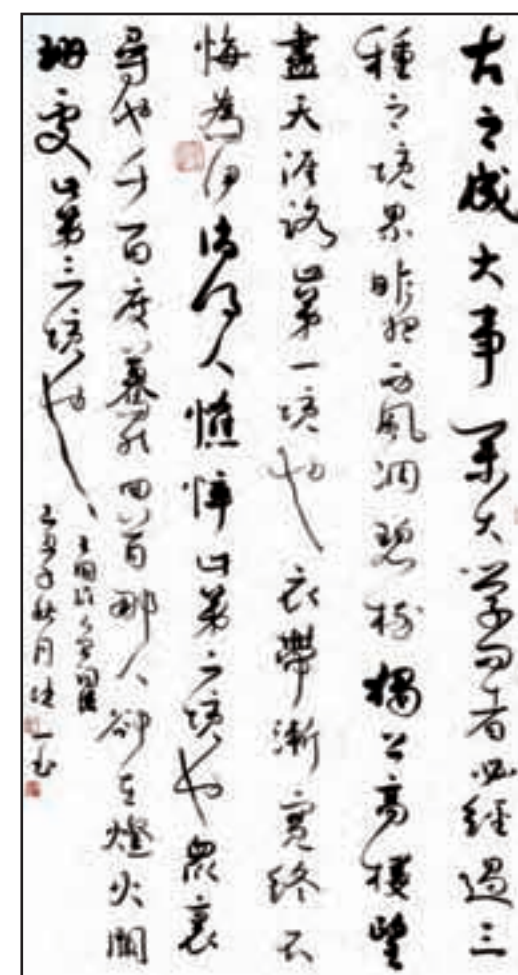 古之成大事業大學問者必經過三
種之境界昨夜西風凋碧樹獨上高樓望
盡天涯路此第一境也衣帶漸寬終不
悔為伊消得人憔悴此第二境也眾裏
尋他千百度驀然回首那人卻在燈火闌
珊處此第三境也
王國維人間詞話
秋月